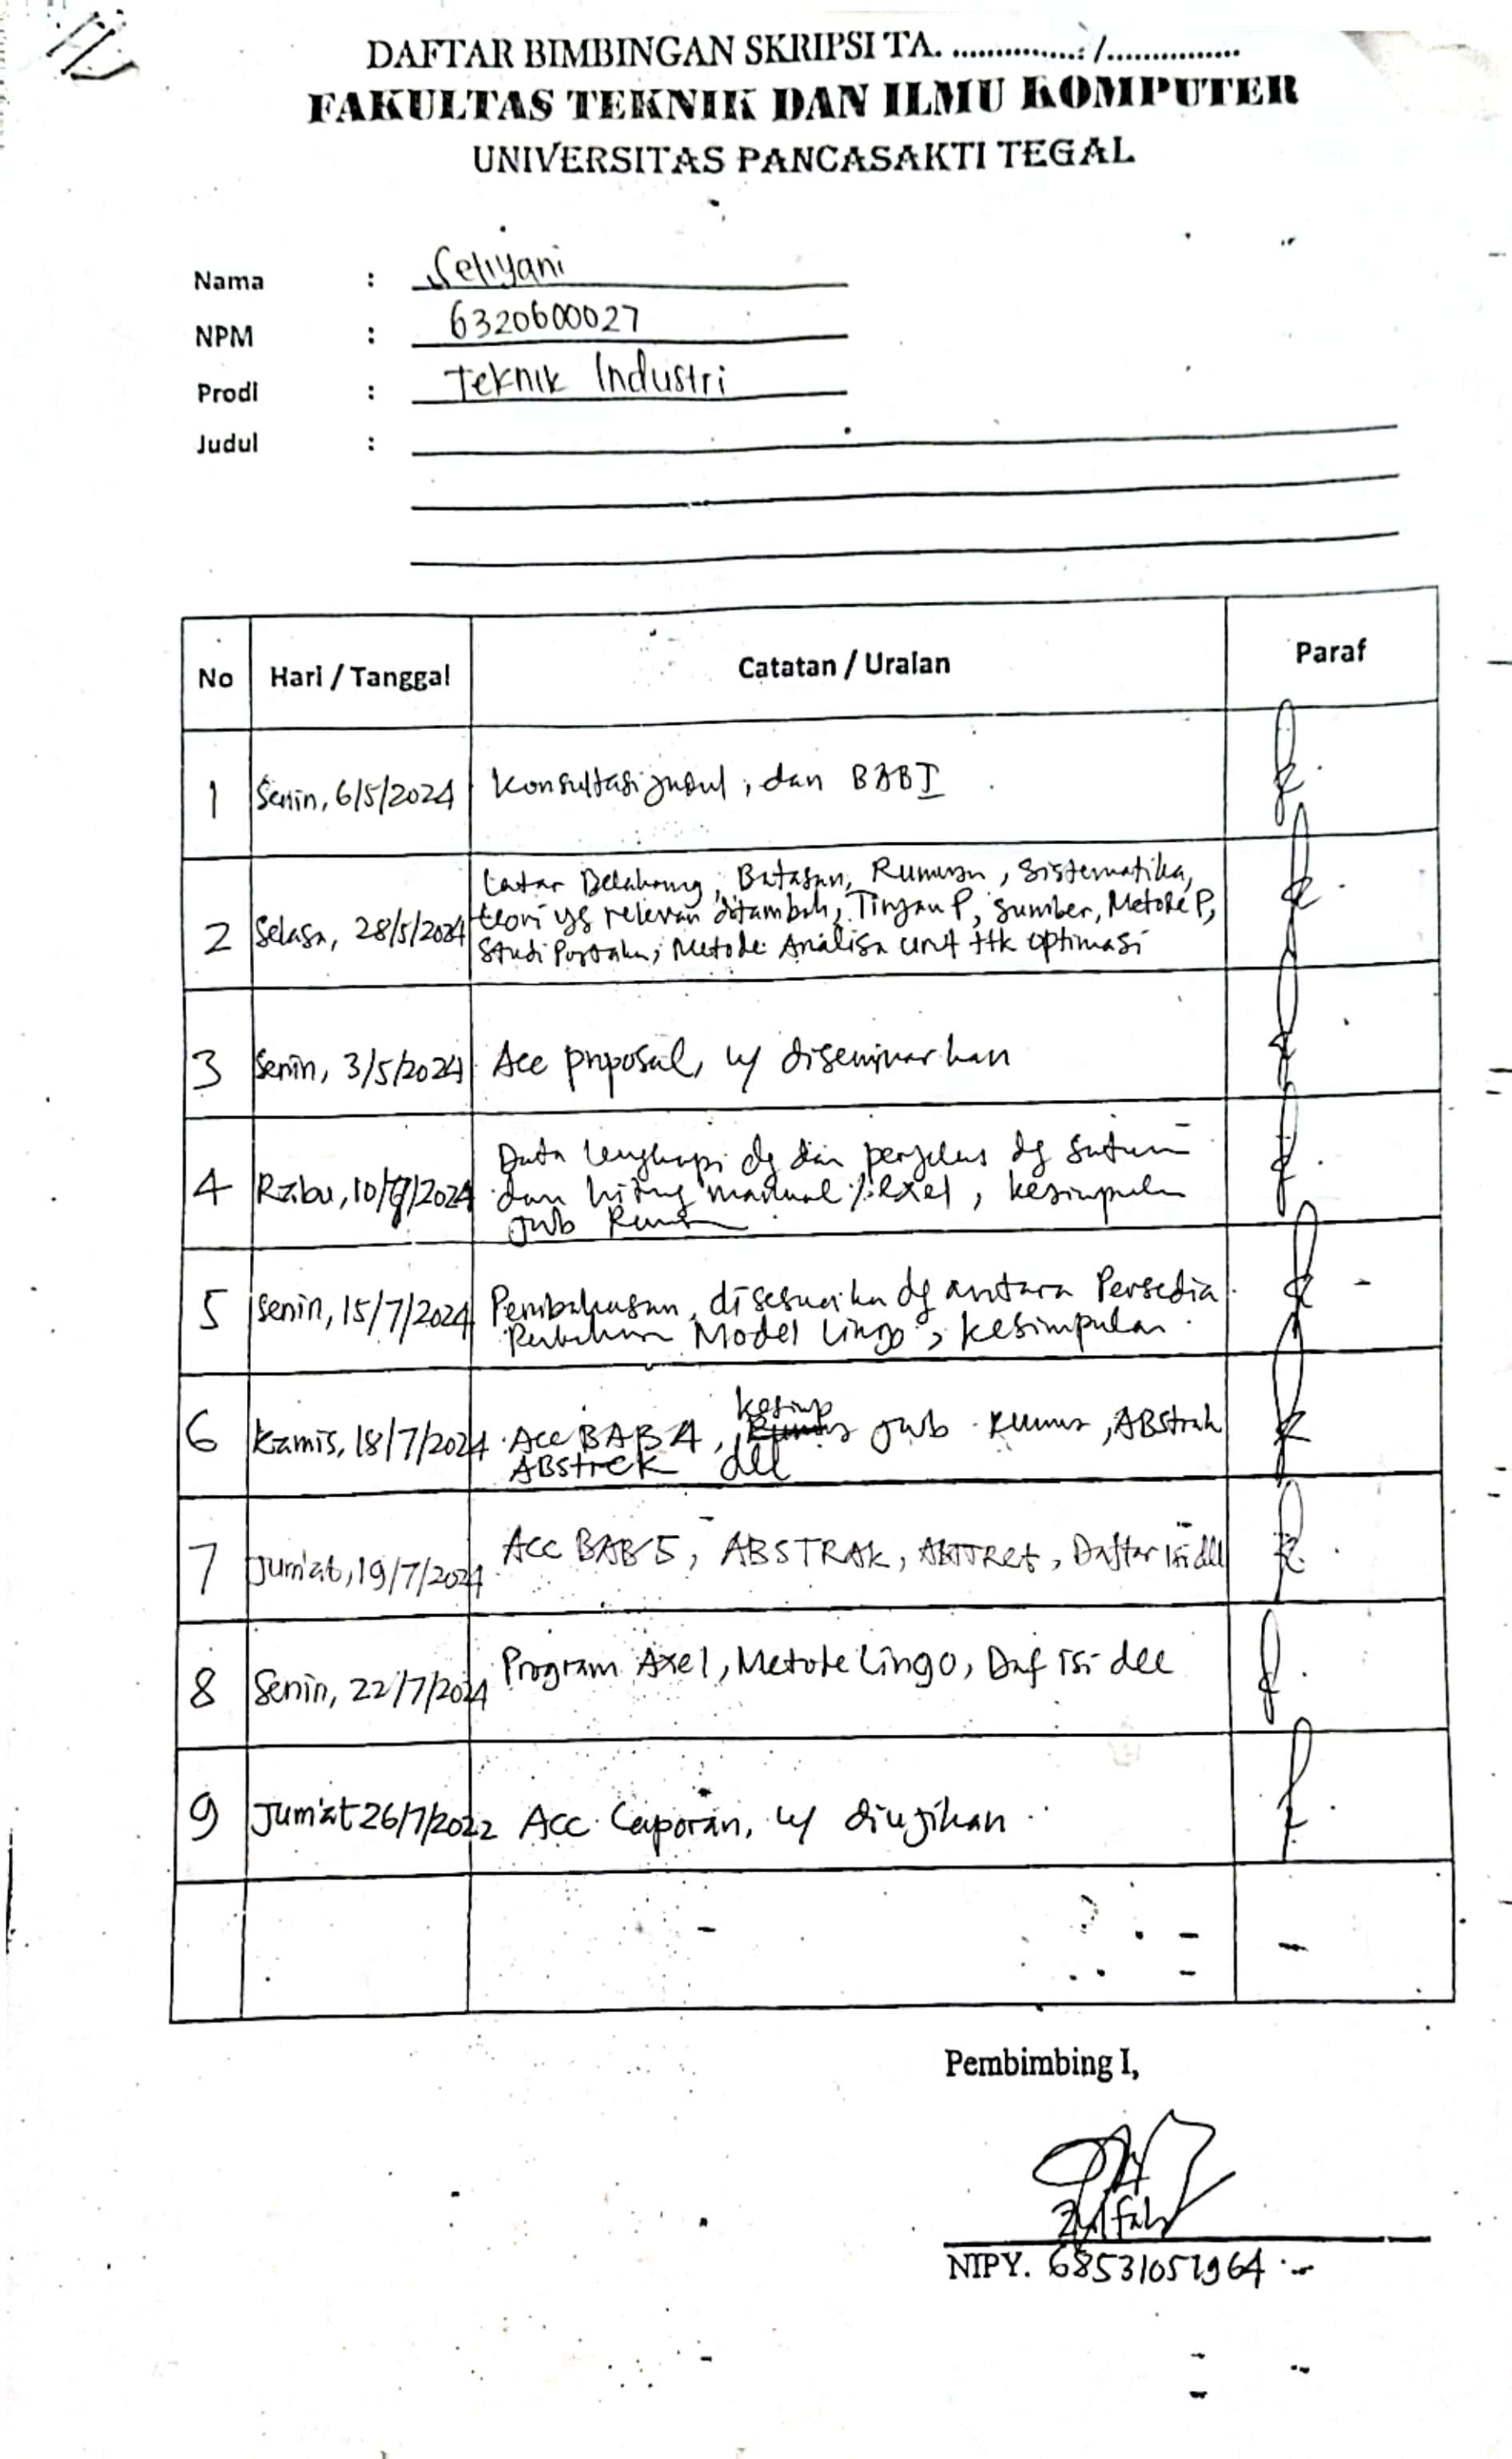 DAFTAR BIMBINGAN SKRIPSI TA. ............... / ...............
FAKULTAS TEKNIK DAN ILMU KOMPUTER
UNIVERSITAS PANCASAKTI TEGAL
Nama : Seliyani
NPM : 6320600027
Prodi : Teknik Industri
Judul :
No Hari / Tanggal Catatan / Uraian Paraf
1 Senin, 6/5/2024 Konsultasi judul, dan BAB I
2 Selasa, 28/5/2024
Latar Belakang, Batasan, Rumusan, Sistematika,
teori yg relevan ditambah, Tinjauan P, Sumber, Metode P,
Studi Pustaka, Metode Analisa unit ttk optimasi
3 Senin, 3/5/2024 Acc proposal, u/ diseminarkan
4 Rabu, 10/7/2024
Data lengkapi dg dan perjelas dg satuan
dan hitung manual / exel, kesimpulan
jwb
5 Senin, 15/7/2024
Pembahasan, disesuaikan dg antara Persedia
Model Lingo, kesimpulan
6 Kamis, 18/7/2024
kesimp
Acc BAB 4, jwb Rumus, ABstrak
ABstrek dll
7 Jum'at, 19/7/2024 Acc BAB 5, ABSTRAK, Daftar isi dll
8 Senin, 22/7/2024 Program Axel, Metode Lingo, Daf isi dll
9 Jum'at 26/7/2022 Acc Laporan, u/ diujikan
Pembimbing I,
Zulfah
NIPY. 68531051964